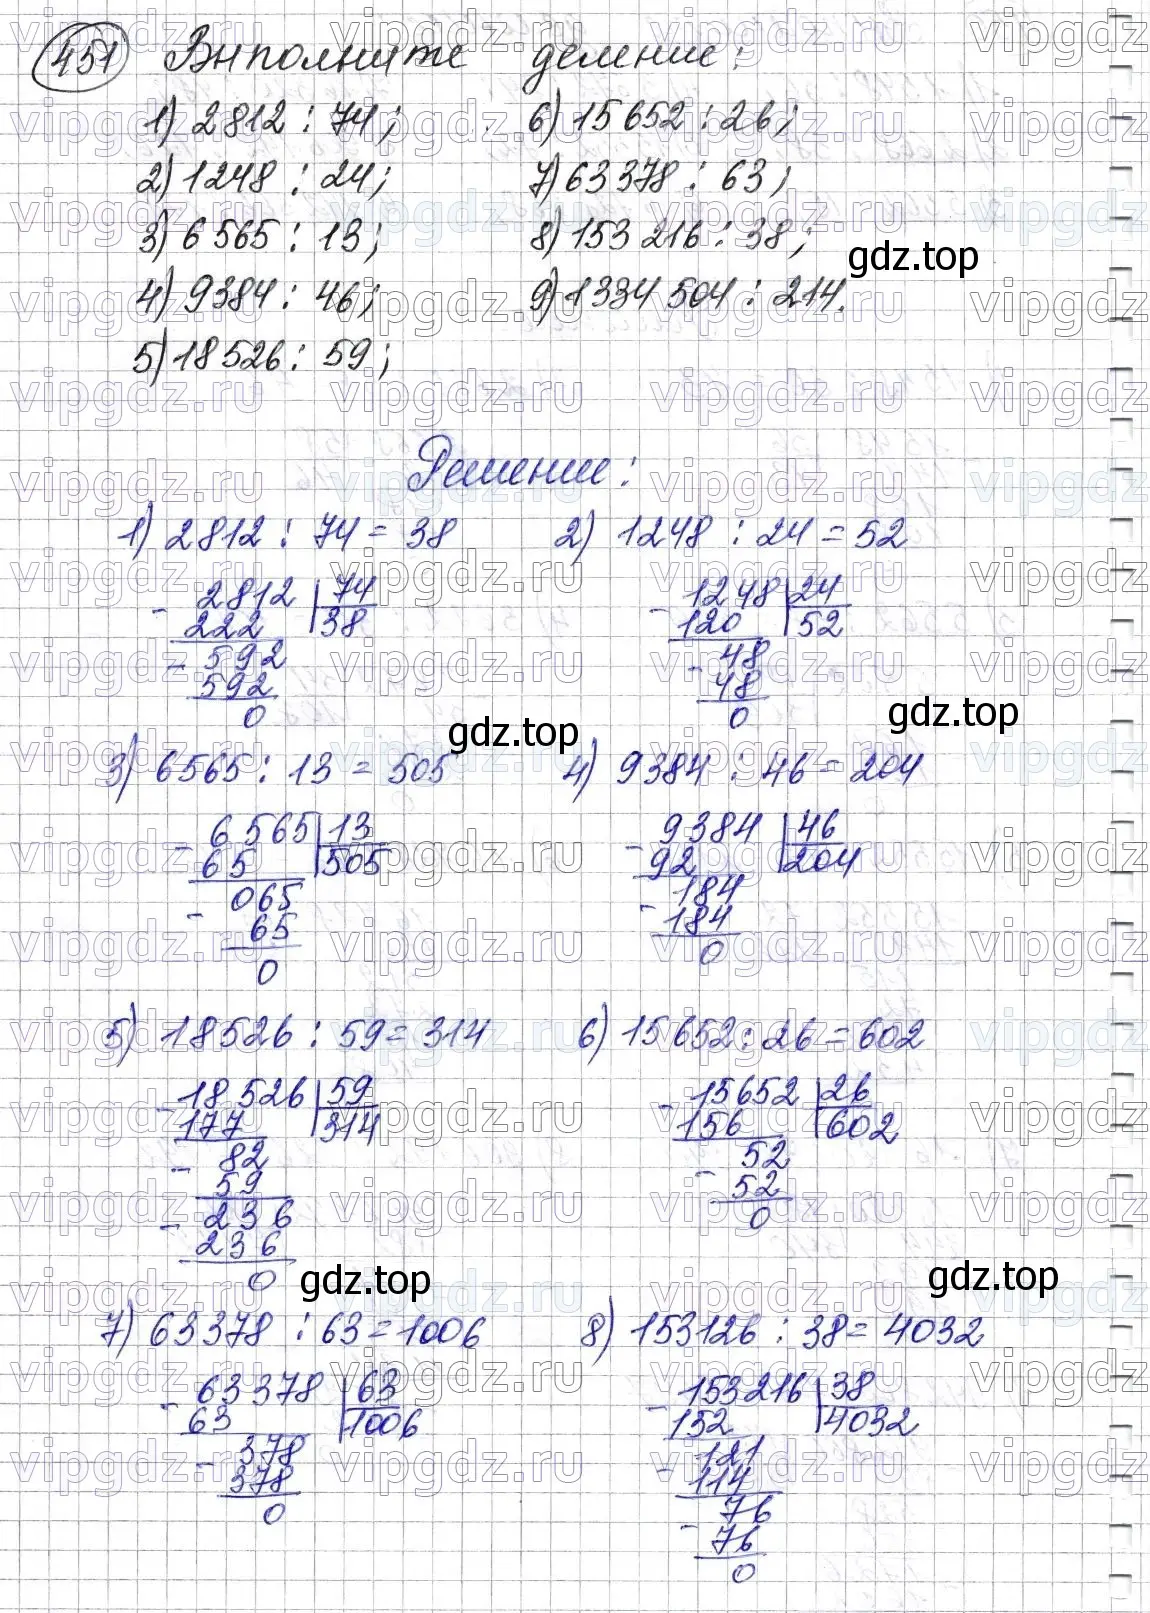 451 Выполните деление:
1) 2812 : 74;
2) 1248 : 24;
3) 6565 : 13;
4) 9384 : 46;
5) 18526 : 59;
6) 15652 : 26;
7) 63378 : 63;
8) 153216 : 38;
9) 1334504 : 214.
gdz.top
Решение:
1) 2812 : 74 = 38
- 2812 | 74
222 38
- 592
592
0
2) 1248 : 24 = 52
- 1248 | 24
120 52
- 48
48
0
gdz.top
gdz.top
3) 6565 : 13 = 505
- 6565 | 13
65 505
- 065
65
0
4) 9384 : 46 = 204
- 9384 | 46
92 204
- 184
184
0
5) 18526 : 59 = 314
- 18526 | 59
177 314
- 82
59
- 236
236
0
6) 15652 : 26 = 602
- 15652 | 26
156 602
- 52
52
0
gdz.top
gdz.top
7) 63378 : 63 = 1006
- 63378 | 63
63 1006
- 378
378
0
8) 153126 : 38 = 4032
- 153216 | 38
152 4032
- 121
114
- 76
76
0
vipgdz.ru